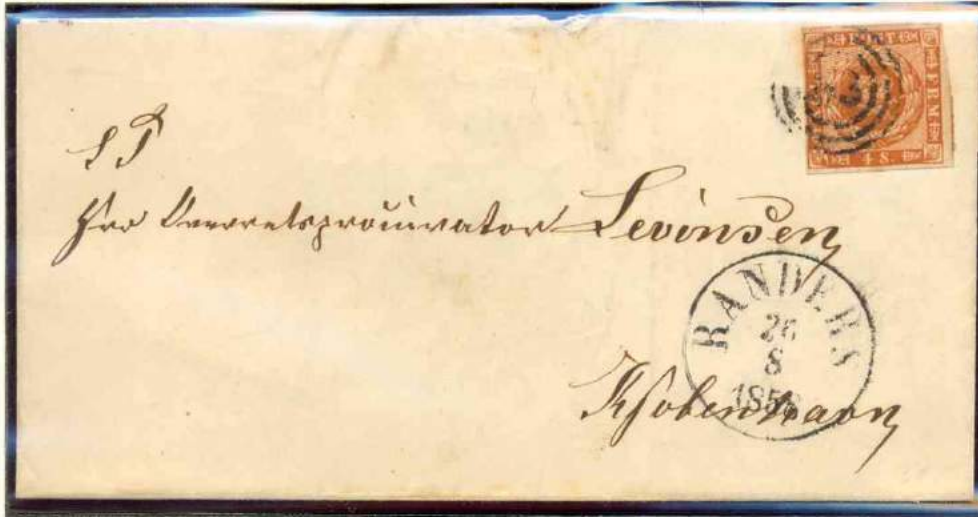 FRM
4 S.
S T
Herr Overretsprocurator Levinsen
RANDERS
26
8
Kjobenhavn